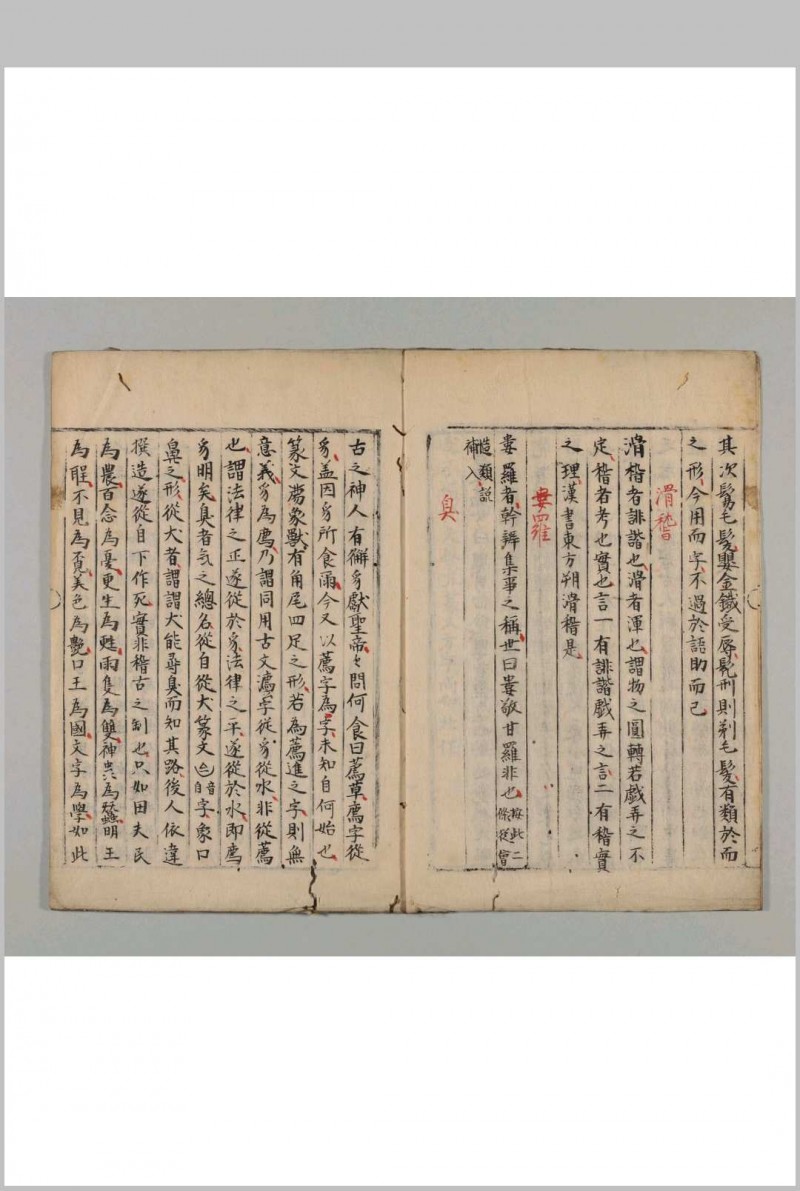 其次髡毛髮嬰金鐵受辱髡刑則剃毛髮有類於而
之形今用而字不過於語助而已
滑稽
滑稽者誹諧也滑者渾也謂物之圓轉若戲弄之不
定稽者考也實也言一有誹諧戲弄之言二有稽實
之理漢書東方朔滑稽是
婁羅
婁羅者幹辦集事之稱世曰婁敬甘羅非也按此二
條從曾
慥類說
補入
臭
古之神人有獬豸獻聖帝々問何食曰薦草廌字從
豸盖因豸所食爾今又以薦字為字未知自何始也
篆文廌象獸有角尾四足之形若為薦進之字則無
意義豸為廌乃謂同用古文灋字從豸從水非從薦
也謂法律之正遂從於豸法律之平遂從於水即廌
豸明矣臭者氣之總名從自從犬篆文自音
自字象口
鼻之形從犬者謂謂犬能尋臭而知其路後人依違
撰造遂從自下作死實非稽古之制也只如田夫民
為農百念為憂更生為甦兩隻為雙神虫為蠶明王
為𦖟不見為覔美色為艷口王為國文字為學如此